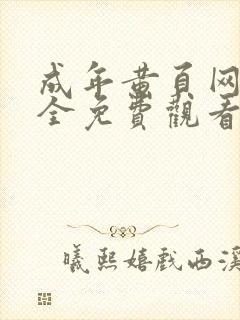 成年黄页网
全免費觀看
曦熙嬉戲西溪